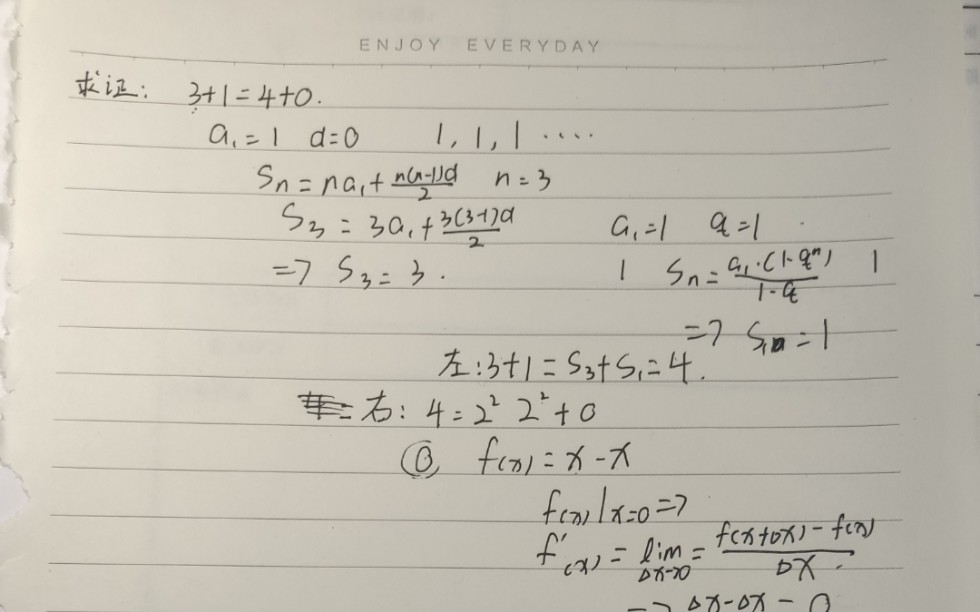 ENJOY EVERYDAY
求证: 3+1=4+0.
a₁=1 d=0 1, 1, 1 ····
Sn=na₁+n(n-1)d/2 n=3
S₃=3a₁+3(3-1)d/2 a₁=1 q=1
=> S₃=3. 1 Sn=a₁·(1-qⁿ)/1-q 1
=> S₁=1
左:3+1=S₃+S₁=4.
右: 4=2² 2²+0
⓪ f(x)=x-x
f(x)|x=0=>
f'(x)=lim Δx→0=f(x+Δx)-f(x)/Δx.
=> Δx-Δx=0